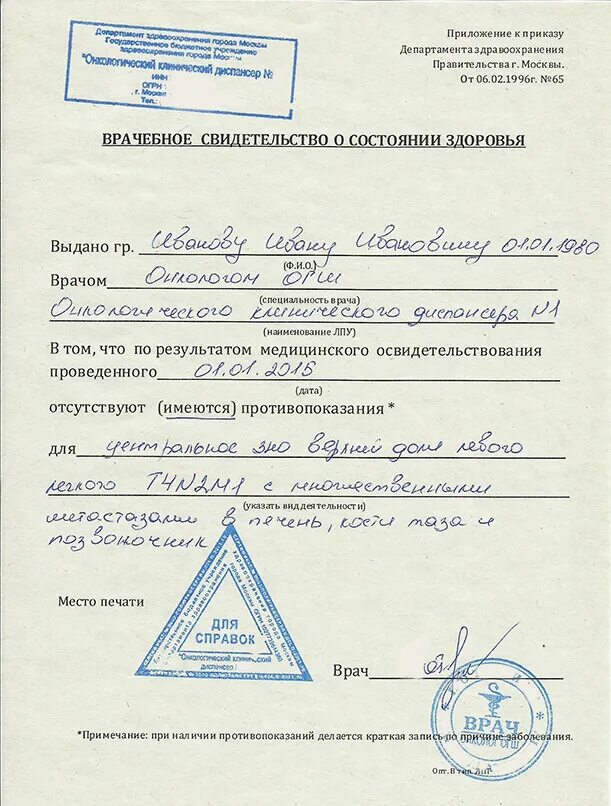 Департамент здравоохранения города Москвы
Государственное бюджетное учреждение
здравоохранения города Москвы
"Онкологический клинический диспансер №
ИНН
ОГРН
г. Москва
Тел.:
Приложение к приказу
Департамента здравоохранения
Правительства г. Москвы.
От 06.02.1996г. №65
ВРАЧЕБНОЕ СВИДЕТЕЛЬСТВО О СОСТОЯНИИ ЗДОРОВЬЯ
Выдано гр. Иванову Ивану Ивановичу 01.01.1980
(Ф.И.О.)
Врачом Онкологом ОГШ
(специальность врача)
Онкологического клинического диспансера №1
(наименование ЛПУ)
В том, что по результатом медицинского освидетельствования
проведенного 01.01.2015
(дата)
отсутствуют (имеются) противопоказания *
для центральное зно верхней доли левого
легкого T4N2M1 с множественными
(указать вид деятельности)
метастазами в печень, кости таза и
позвоночник
Место печати
ДЛЯ
СПРАВОК
"Онкологический клинический
диспансер
Врач
ВРАЧ
ОНКОЛОГ ОГШ
*Примечание: при наличии противопоказаний делается краткая запись по причине заболевания.
Опт. В тип. ДЗП